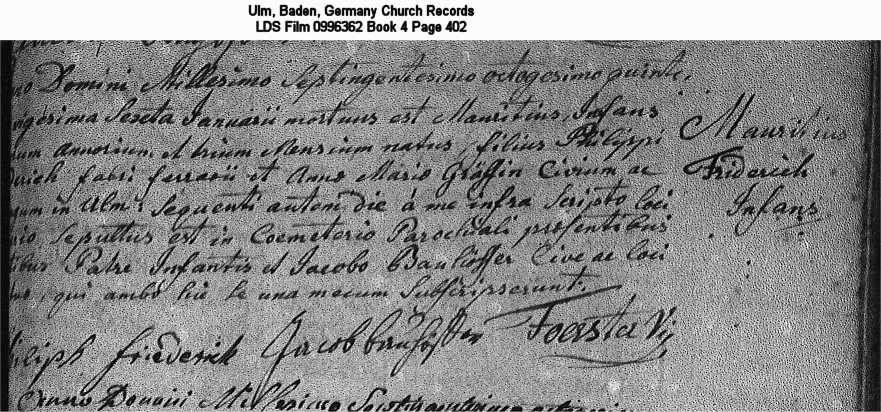 Ulm, Baden, Germany Church Records
LDS Film 0996362 Book 4 Page 402
no Domini Millesimo Septingentesimo octogesimo quinto,
ogesima Sexta Januarii mortuus est Mauritius, Infans
um annorum, et trium Mensium natus, filius Philippi
drich fabri ferrarii et Anno Mario Gräffin Civium ac
um in Ulm: Sequenti autem die à me infra Scripto loci
rio Sepultus est in Coemeterio Parochiali presentibus
ibus Patre Infantis et Jacobo Bauhöffer Cive ac loci
qui ambo hic se una mecum Subscripserunt.
Mauritius
Friderich
Infans
hiliph friederich Jacob bauhöffer Foerster
Anno Domini Millesimo Septingentesimo